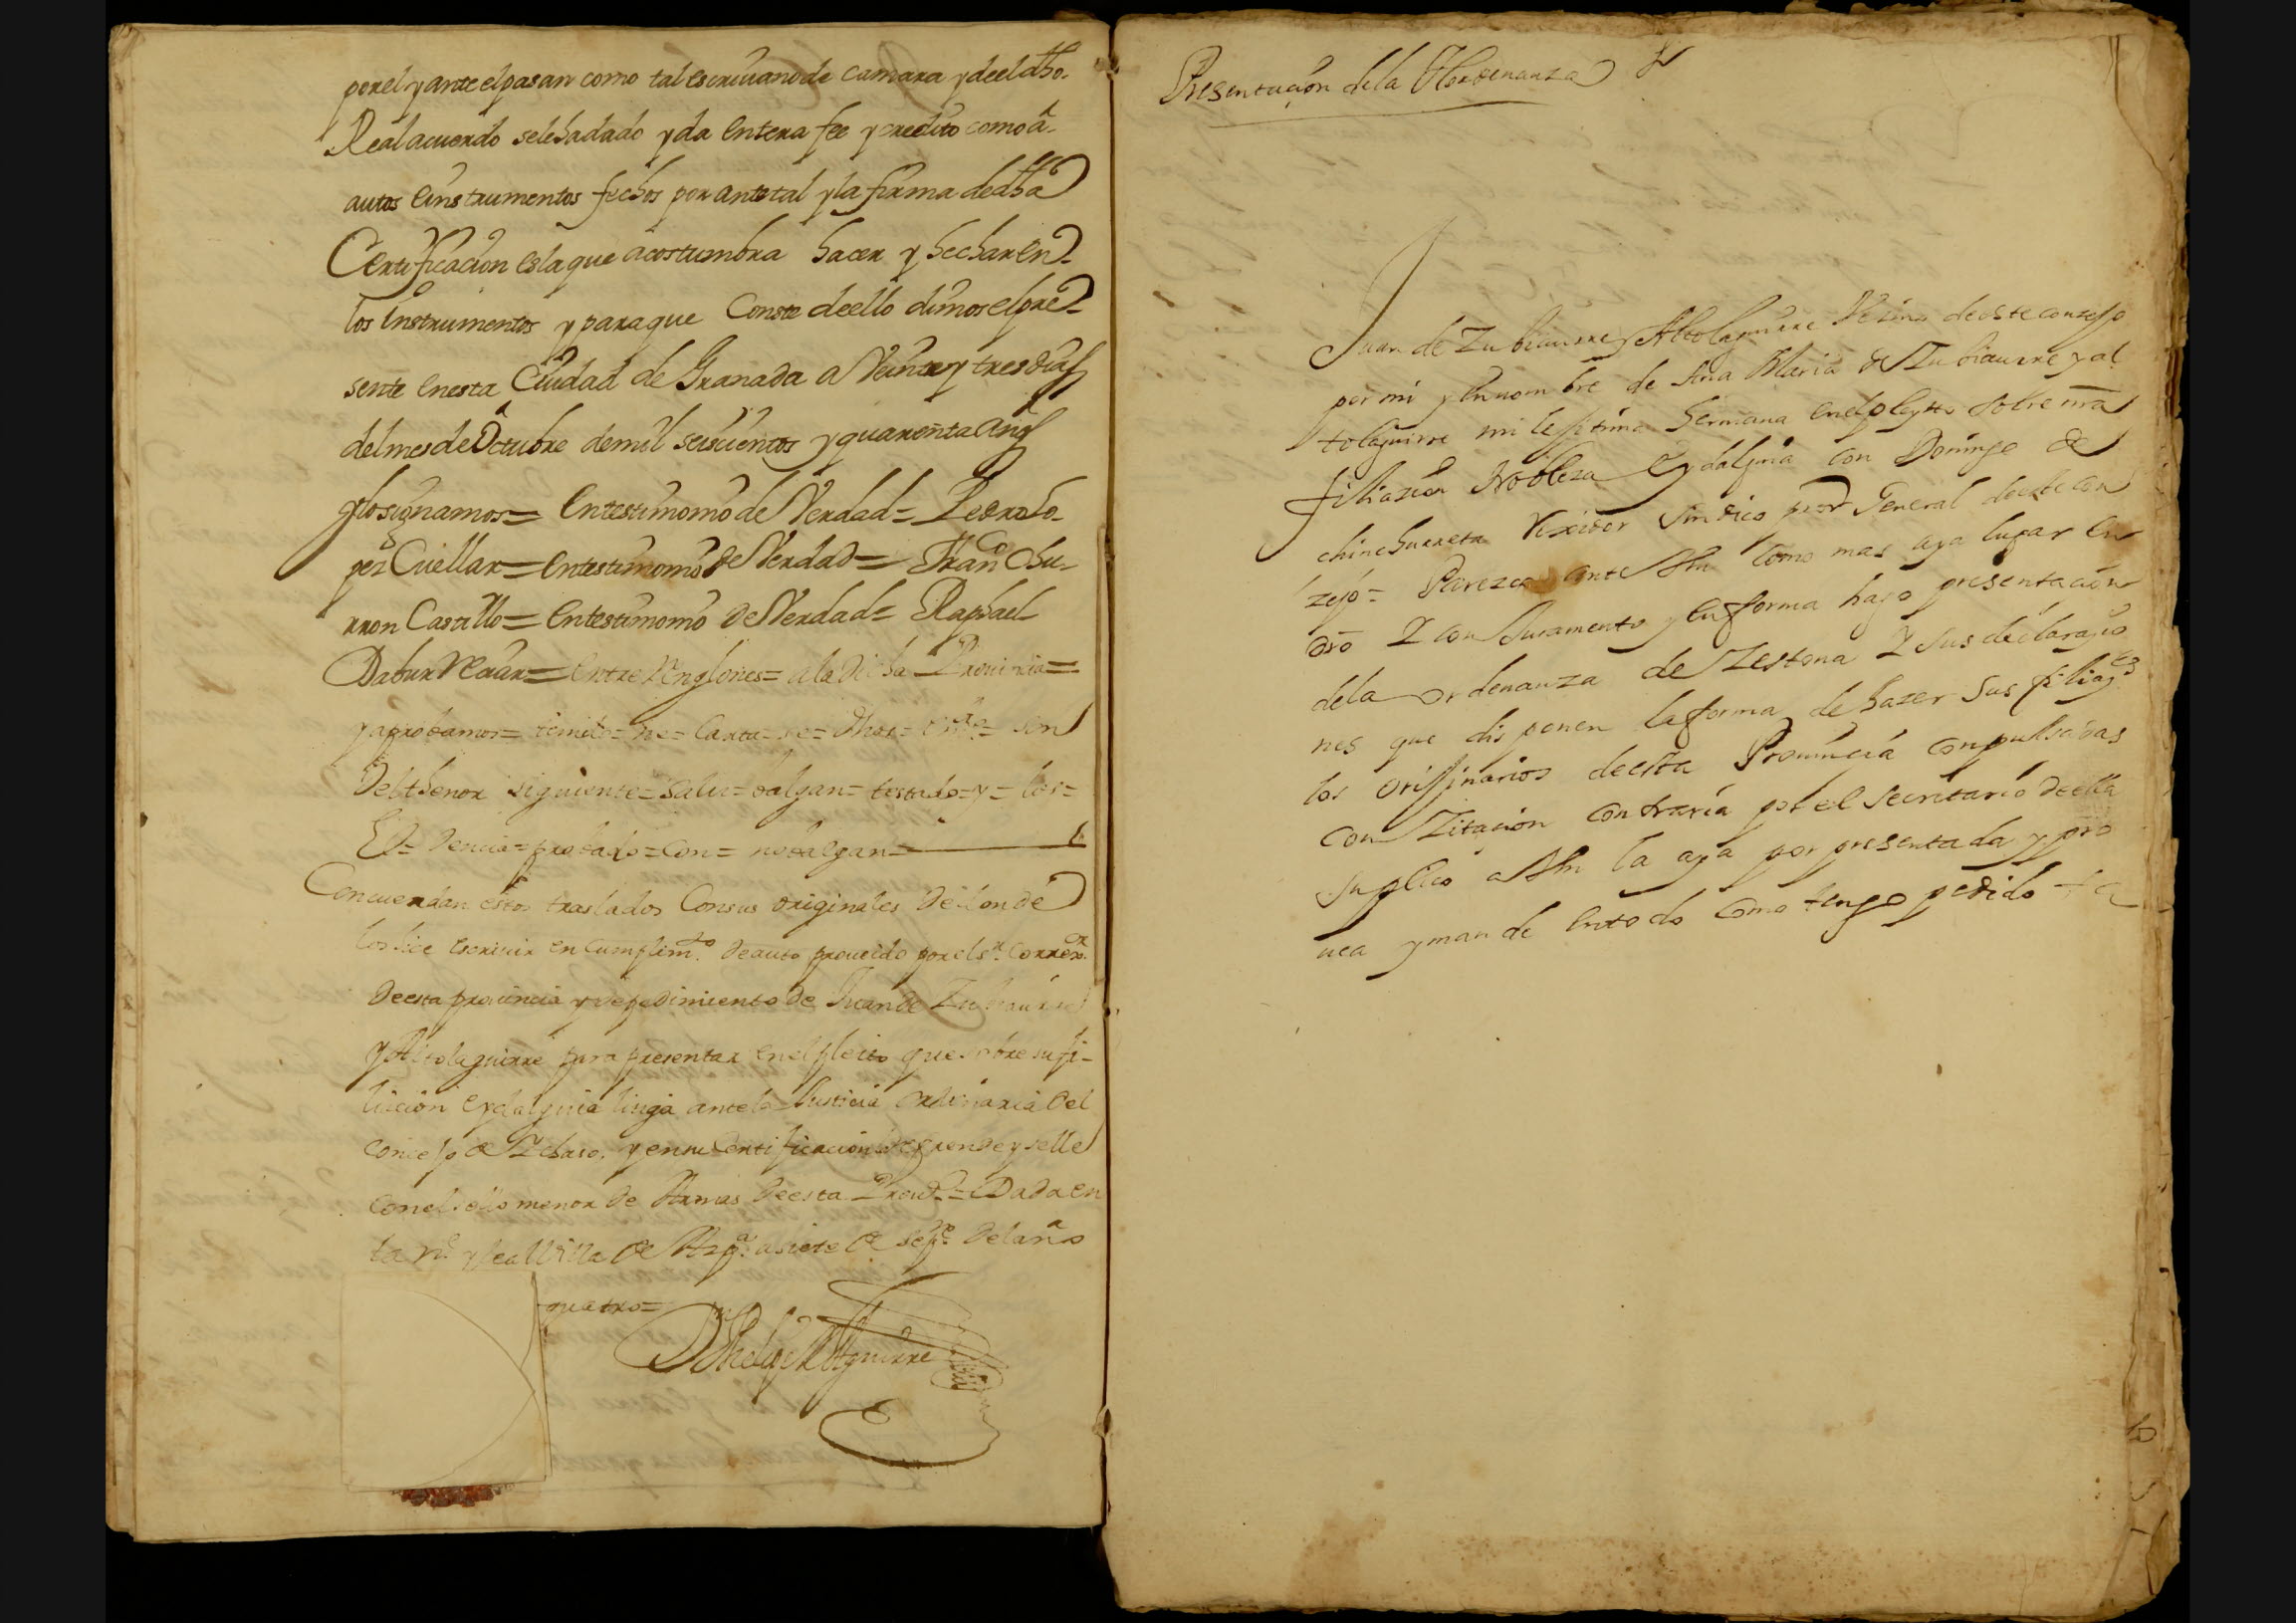 por el y ante el pasan como tal escriuano de camara y de el dho.
Real acuerdo sele ha dado y da entera fee y credito como â
autos e instrumentos fechos por ante tal y la firma de dha
Certificacion es la que acostumbra hacer y hechar en
los instrumentos y para que Conste de ello dimos el pre-
sente en esta Ciudad de Granada a Veinte y tres dias
del mes de Octubre de mil seiscientos y quarenta años
y lo signamos = en testimonio de Verdad = Pedro Lo-
pez Cuellar = en testimonio de Verdad = Franco Chu-
rron Castillo = en testimonio de Verdad = Raphael
entre Renglones = a la dicha Prouincia =
y aprobamos = Carta = son
Del thenor siguiente = Salu = valgan = testado = y = los =
dencia = probado = con = no valgan =
Concuerdan estos traslados Con sus originales de donde
los hice escriuir en Cumplimto. de auto proueido por el sr. Correor.
de esta prouincia y de pedimiento de Juan de Zubiaurre
y Altolaguirre para presentar en el pleito que sobre su fi-
liacion e ydalguia litiga ante la Justicia ordinaria del
Concejo de Ychaso, y en su Certificacion refrende y selle
con el sello menor de Armas de esta Prouа = Dada en
la n. y leal Villa de Azpa. a siete de sepe. del año
quatro =
Phelipe Aguirre
Presentaçion dela Hordenanza
Juan de Zubiaurre y Altolaguirre Vezino de este conzejo
por mi y en nombre de Ana Maria de Zubiaurre y al
tolaguirre mi lejitima hermana en el pleyto sobre nra
filiazion Nobleza e ydalguia con Domingo de
chinchurreta Rexidor Sindico pror General de este con
zejo = Parezco ante Vm como mas aya lugar en
dro Y con Juramento y en forma hago presentaçion
dela ordenanza de Zestona Y sus declaraçio
nes que disponen la forma de hazer sus filiaçes
los orijinarios de esta Prouinçia conpulsadas
con Zitaçion contraria por el secretario de ella
suplico a Vm la aya por presentada y pro
uea y mande en todo como tengo pedido